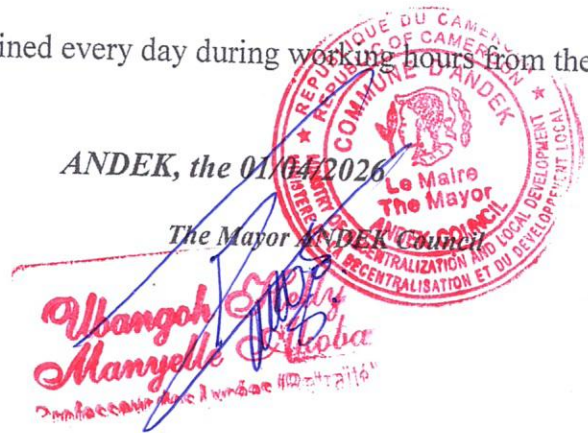 ined every day during working hours from the
ANDEK, the 01/04/2026
The Mayor ANDEK Council
REPUBLIQUE DU CAMEROUN
REPUBLIC OF CAMEROON
COMMUNE D'ANDEK
Le Maire
The Mayor
ANDEK COUNCIL
MINISTRY OF DECENTRALIZATION AND LOCAL DEVELOPMENT
MINISTERE DE LA DECENTRALISATION ET DU DEVELOPPEMENT LOCAL
Ubangoh Helly
Manyelle Akoba
Professeur des Lycées